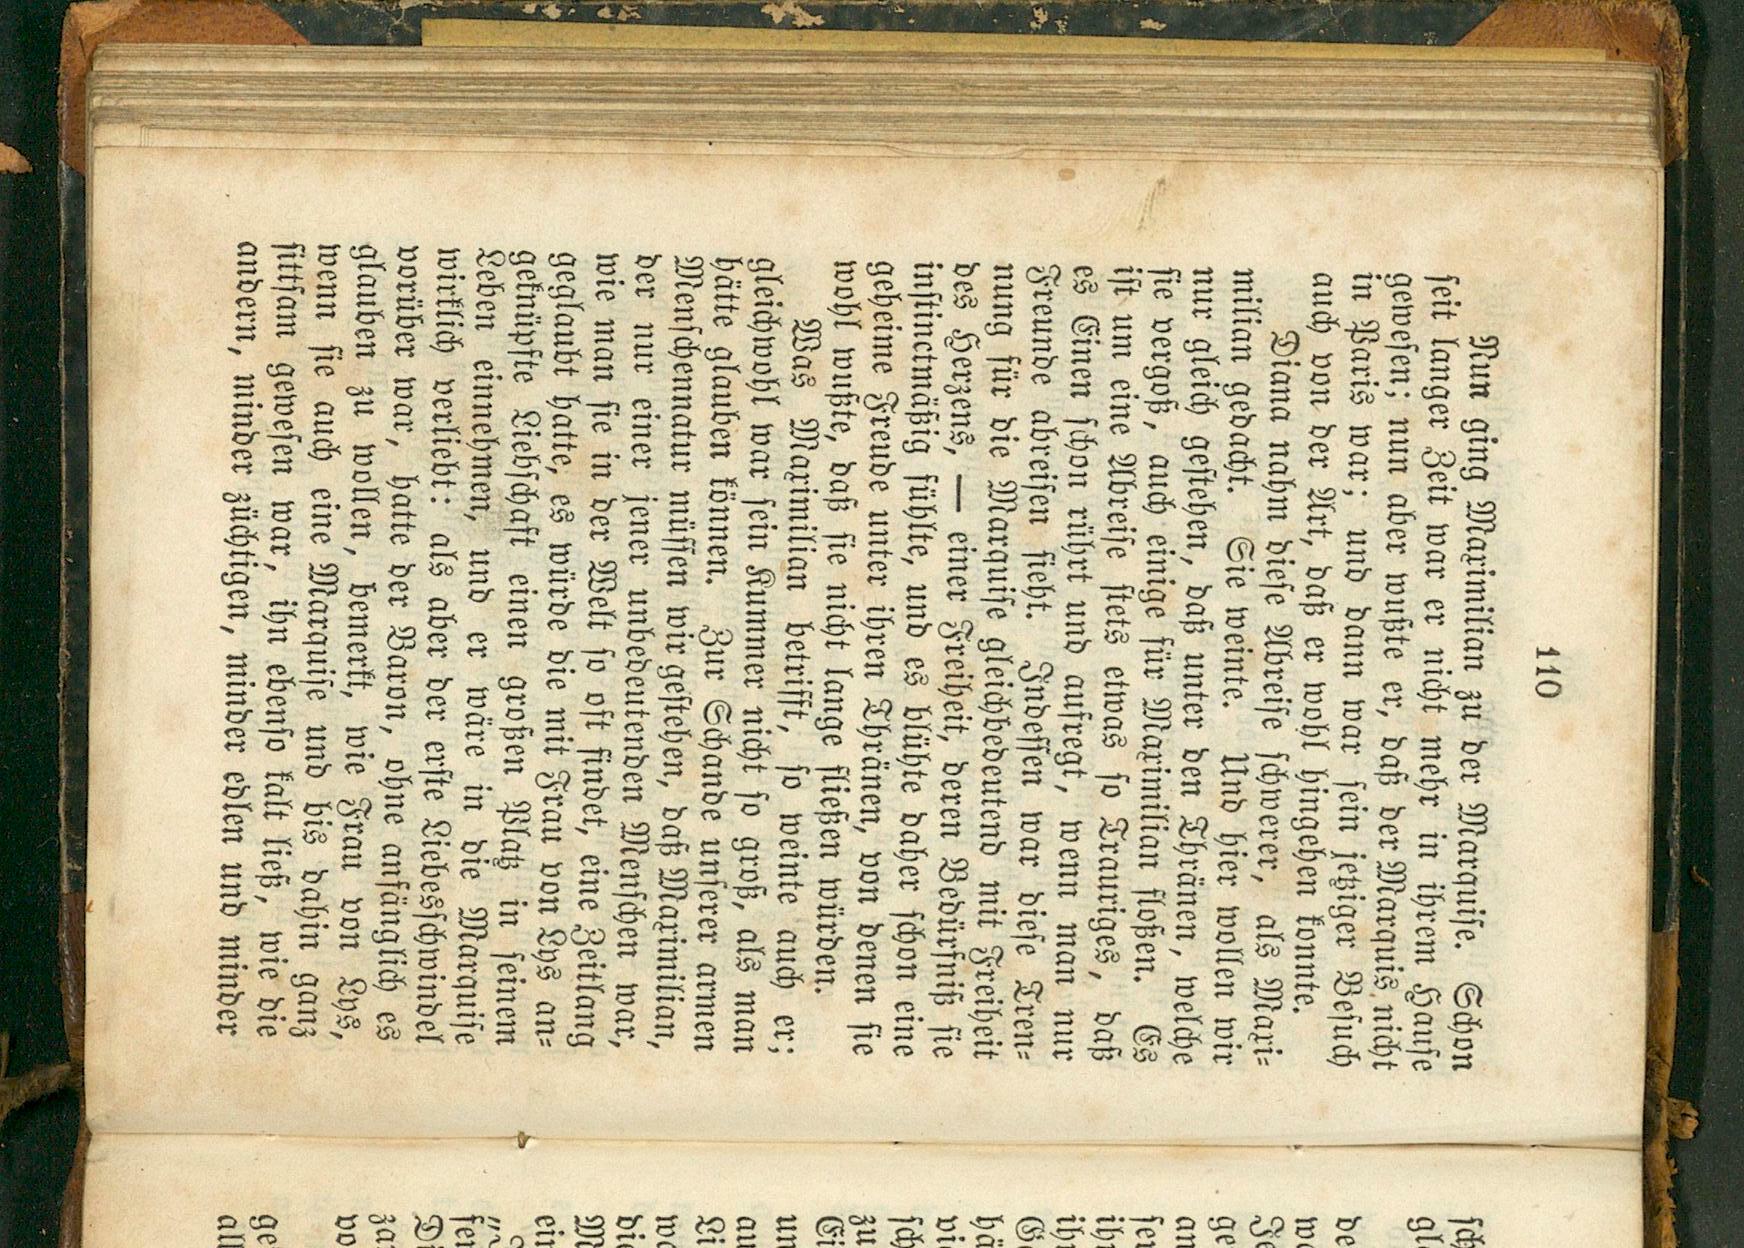 110
Nun ging Maximilian zu der Marquise. Schon
seit langer Zeit war er nicht mehr in ihrem Hause
gewesen; nun aber wußte er, daß der Marquis nicht
in Paris war; und dann war sein jetziger Besuch
auch von der Art, daß er wohl hingehen konnte.
Diana nahm diese Abreise schwerer, als Maxi-
milian gedacht. Sie weinte. Und hier wollen wir
nur gleich gestehen, daß unter den Thränen, welche
sie vergoß, auch einige für Maximilian floßen. Es
ist um eine Abreise stets etwas so Trauriges, daß
es Einen schon rührt und aufregt, wenn man nur
Freunde abreisen sieht. Indessen war diese Tren-
nung für die Marquise gleichbedeutend mit Freiheit
des Herzens, — einer Freiheit, deren Bedürfniß sie
instinctmäßig fühlte, und es blühte daher schon eine
geheime Freude unter ihren Thränen, von denen sie
wohl wußte, daß sie nicht lange fließen würden.
Was Maximilian betrifft, so weinte auch er;
gleichwohl war sein Kummer nicht so groß, als man
hätte glauben können. Zur Schande unserer armen
Menschennatur müssen wir gestehen, daß Maximilian,
der nur einer jener unbedeutenden Menschen war,
wie man sie in der Welt so oft findet, eine Zeitlang
geglaubt hatte, es würde die mit Frau von Lys an-
geknüpfte Liebschaft einen großen Platz in seinem
Leben einnehmen, und er wäre in die Marquise
wirklich verliebt: als aber der erste Liebesschwindel
vorüber war, hatte der Baron, ohne anfänglich es
glauben zu wollen, bemerkt, wie Frau von Lys,
wenn sie auch eine Marquise und bis dahin ganz
sittsam gewesen war, ihn ebenso kalt ließ, wie die
andern, minder züchtigen, minder edlen und minder